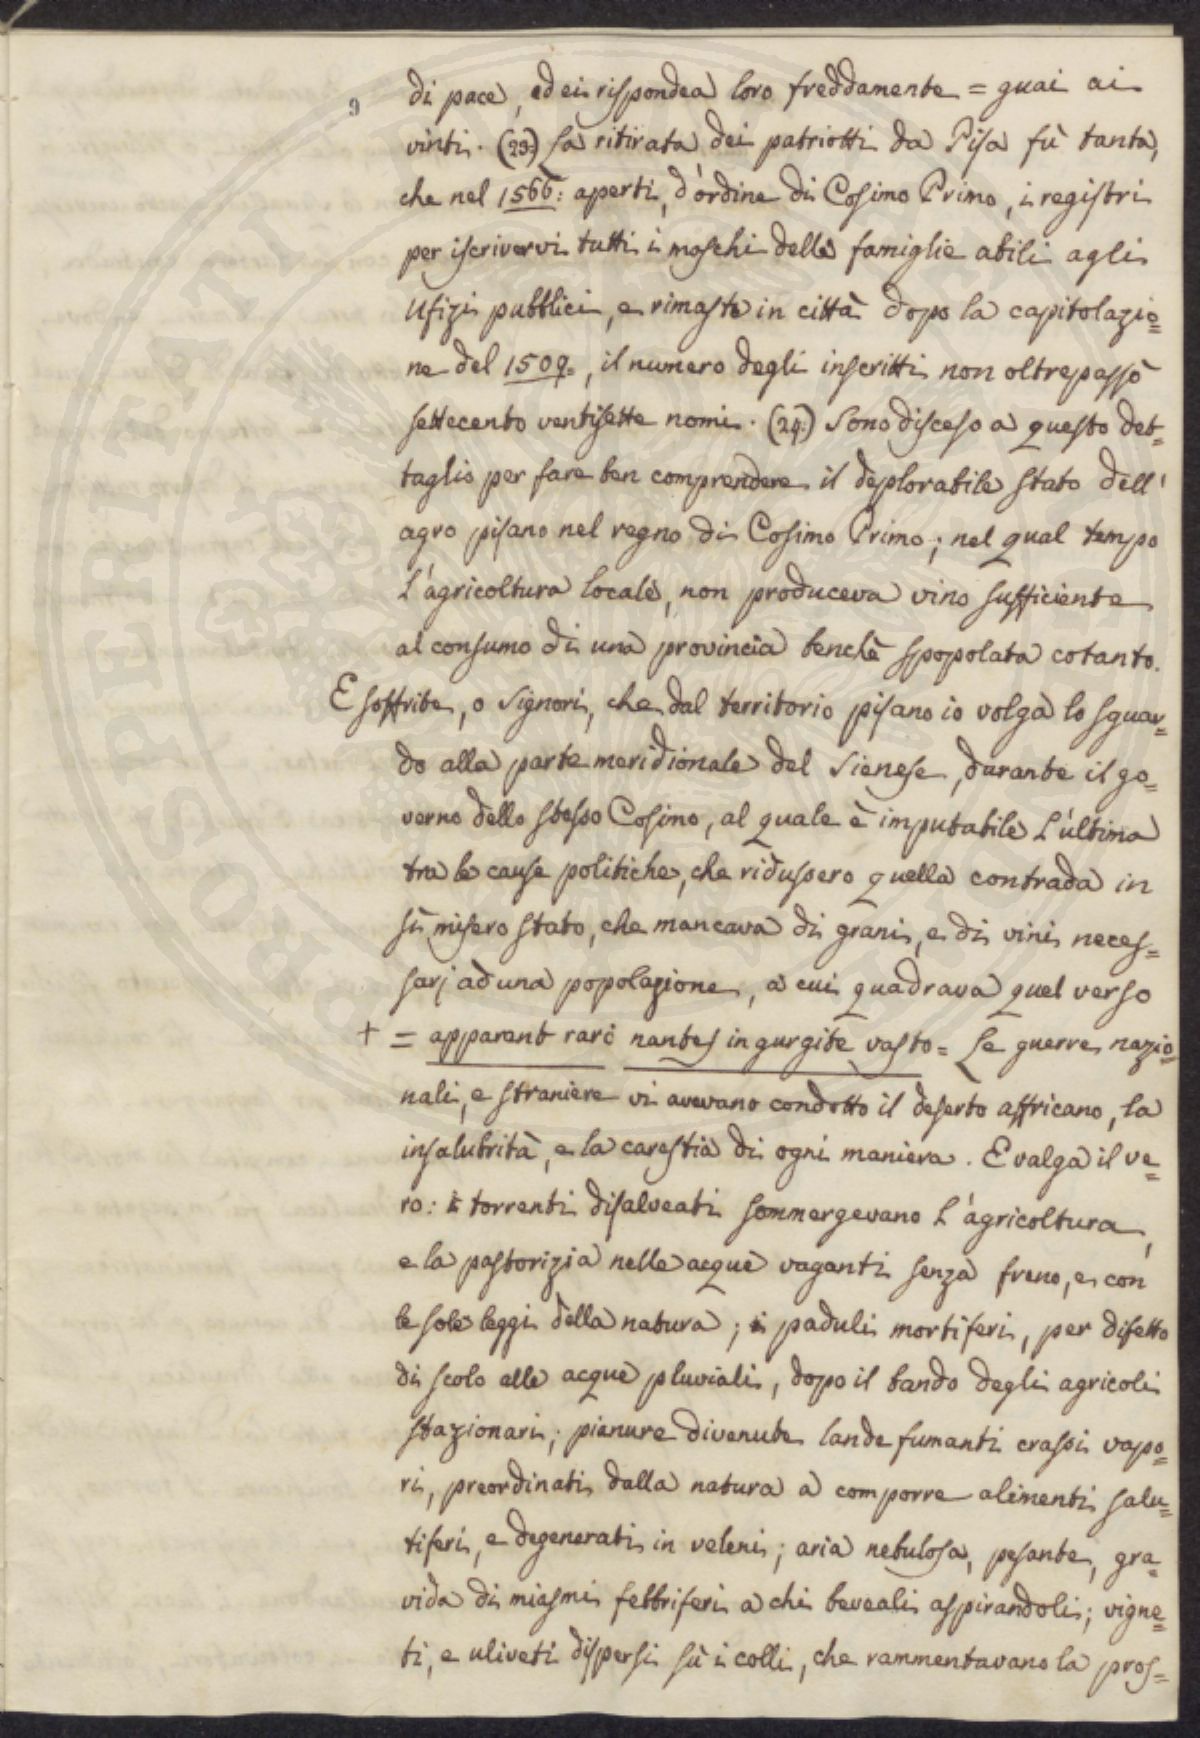 9
di pace, ed ei rispondea loro freddamente = guai ai
vinti. (23.) La ritirata dei patriotti da Pisa fù tanta,
che nel 1566: aperti, d'ordine di Cosimo Primo, i registri
per iscrivervi tutti i maschi delle famiglie abili agli
Ufizi pubblici, e rimaste in città dopo la capitolazio=
ne del 1509., il numero degli inscritti non oltrepassò
settecento ventisette nomi. (24.) Sono disceso a questo det=
taglio per fare ben comprendere il deplorabile stato dell'
agro pisano nel regno di Cosimo Primo; nel qual tempo
l'agricoltura locale, non produceva vino sufficiente
al consumo di una provincia benchè spopolata cotanto.
E soffrite, o Signori, che dal territorio pisano io volga lo sguar=
do alla parte meridionale del Sienese, durante il go=
verno dello stesso Cosimo, al quale è imputabile l'ultima
tra le cause politiche, che ridussero quella contrada in
sì misero stato, che mancava di grani, e di vini neces=
sarj ad una popolazione, a cui quadrava quel verso
+ = apparent rari nantes in gurgite vasto = Le guerre nazio=
nali, e straniere vi avevano condotto il deserto affricano, la
insalubrità, e la carestia di ogni maniera. E valga il ve=
ro: i torrenti disalveati sommergevano l'agricoltura,
e la pastorizia nelle acque vaganti senza freno, e con
le sole leggi della natura; i paduli mortiferi, per difetto
di scolo alle acque pluviali, dopo il bando degli agricoli
stazionari; pianure divenute lande fumanti crassi vapo=
ri, preordinati dalla natura a comporre alimenti salu=
tiferi, e degenerati in veleni; aria nebulosa, pesante, gra=
vida di miasmi febbriferi a chi beveali aspirandoli; vigne=
ti, e uliveti dispersi sù i colli, che rammentavano la pros=
PROSPERITATI